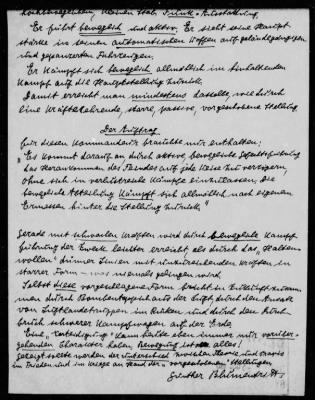 Er führt beweglich und aktiv. Er sieht seine Haupt-
stärke in seinen automatischen Waffen auf geländegängigen
und gepanzerten Fahrzeugen.
Er kämpft sich beweglich allmählich im hinhaltenden
Kampf auf die Hauptstellung zurück.
Damit erreicht man mindestens dasselbe, wie durch
eine kräftezehrende, starre, passive, vorgeschobene Stellung.
Der Auftrag
für diesen Kommandeur brauchte nur enthalten:
"Es kommt darauf an durch aktive, bewegliche Gefechtsführung
das Herankommen des Feindes auf jede Weise zu verzögern,
ohne sich in verlustreiche Kämpfe einzulassen. Die
bewegliche Abteilung kämpft sich allmählich nach eigenem
Ermessen hinter die Stellung zurück."
Gerade mit schwachen Kräften wird durch bewegliche Kampf-
führung der Zweck leichter erreicht als durch das "Halten-
wollen" dünner Linien mit unzureichenden Kräften in
starrer Form - was niemals gelingen wird.
Selbst diese vorgeschlagene Form bricht
durch Bombenteppich aus der Luft, durch den Ansatz
von Luftlandetruppen im Rücken und durch den
bruch schwerer Kampfwagen auf der Erde
Eine "Verteidigung" kann heute eben immer nur vorüber-
gehenden Charakter haben, Bewegung ist alles!
gezeigt sollte werden der Unterschied zwischen Theorie und Praxis
im Frieden und im Kriege an Hand der "vorgeschobenen" Stellungen
Günther Blumentritt